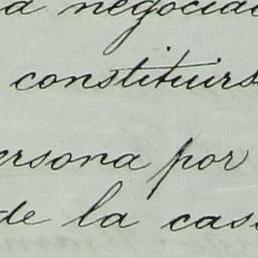 a negociac
constituirs
ersona por
de la cas